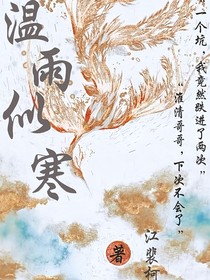 温雨似寒
一个坑，我竟然跌进了两次”
“淮清哥哥，下次不会了”
江裴柯
著